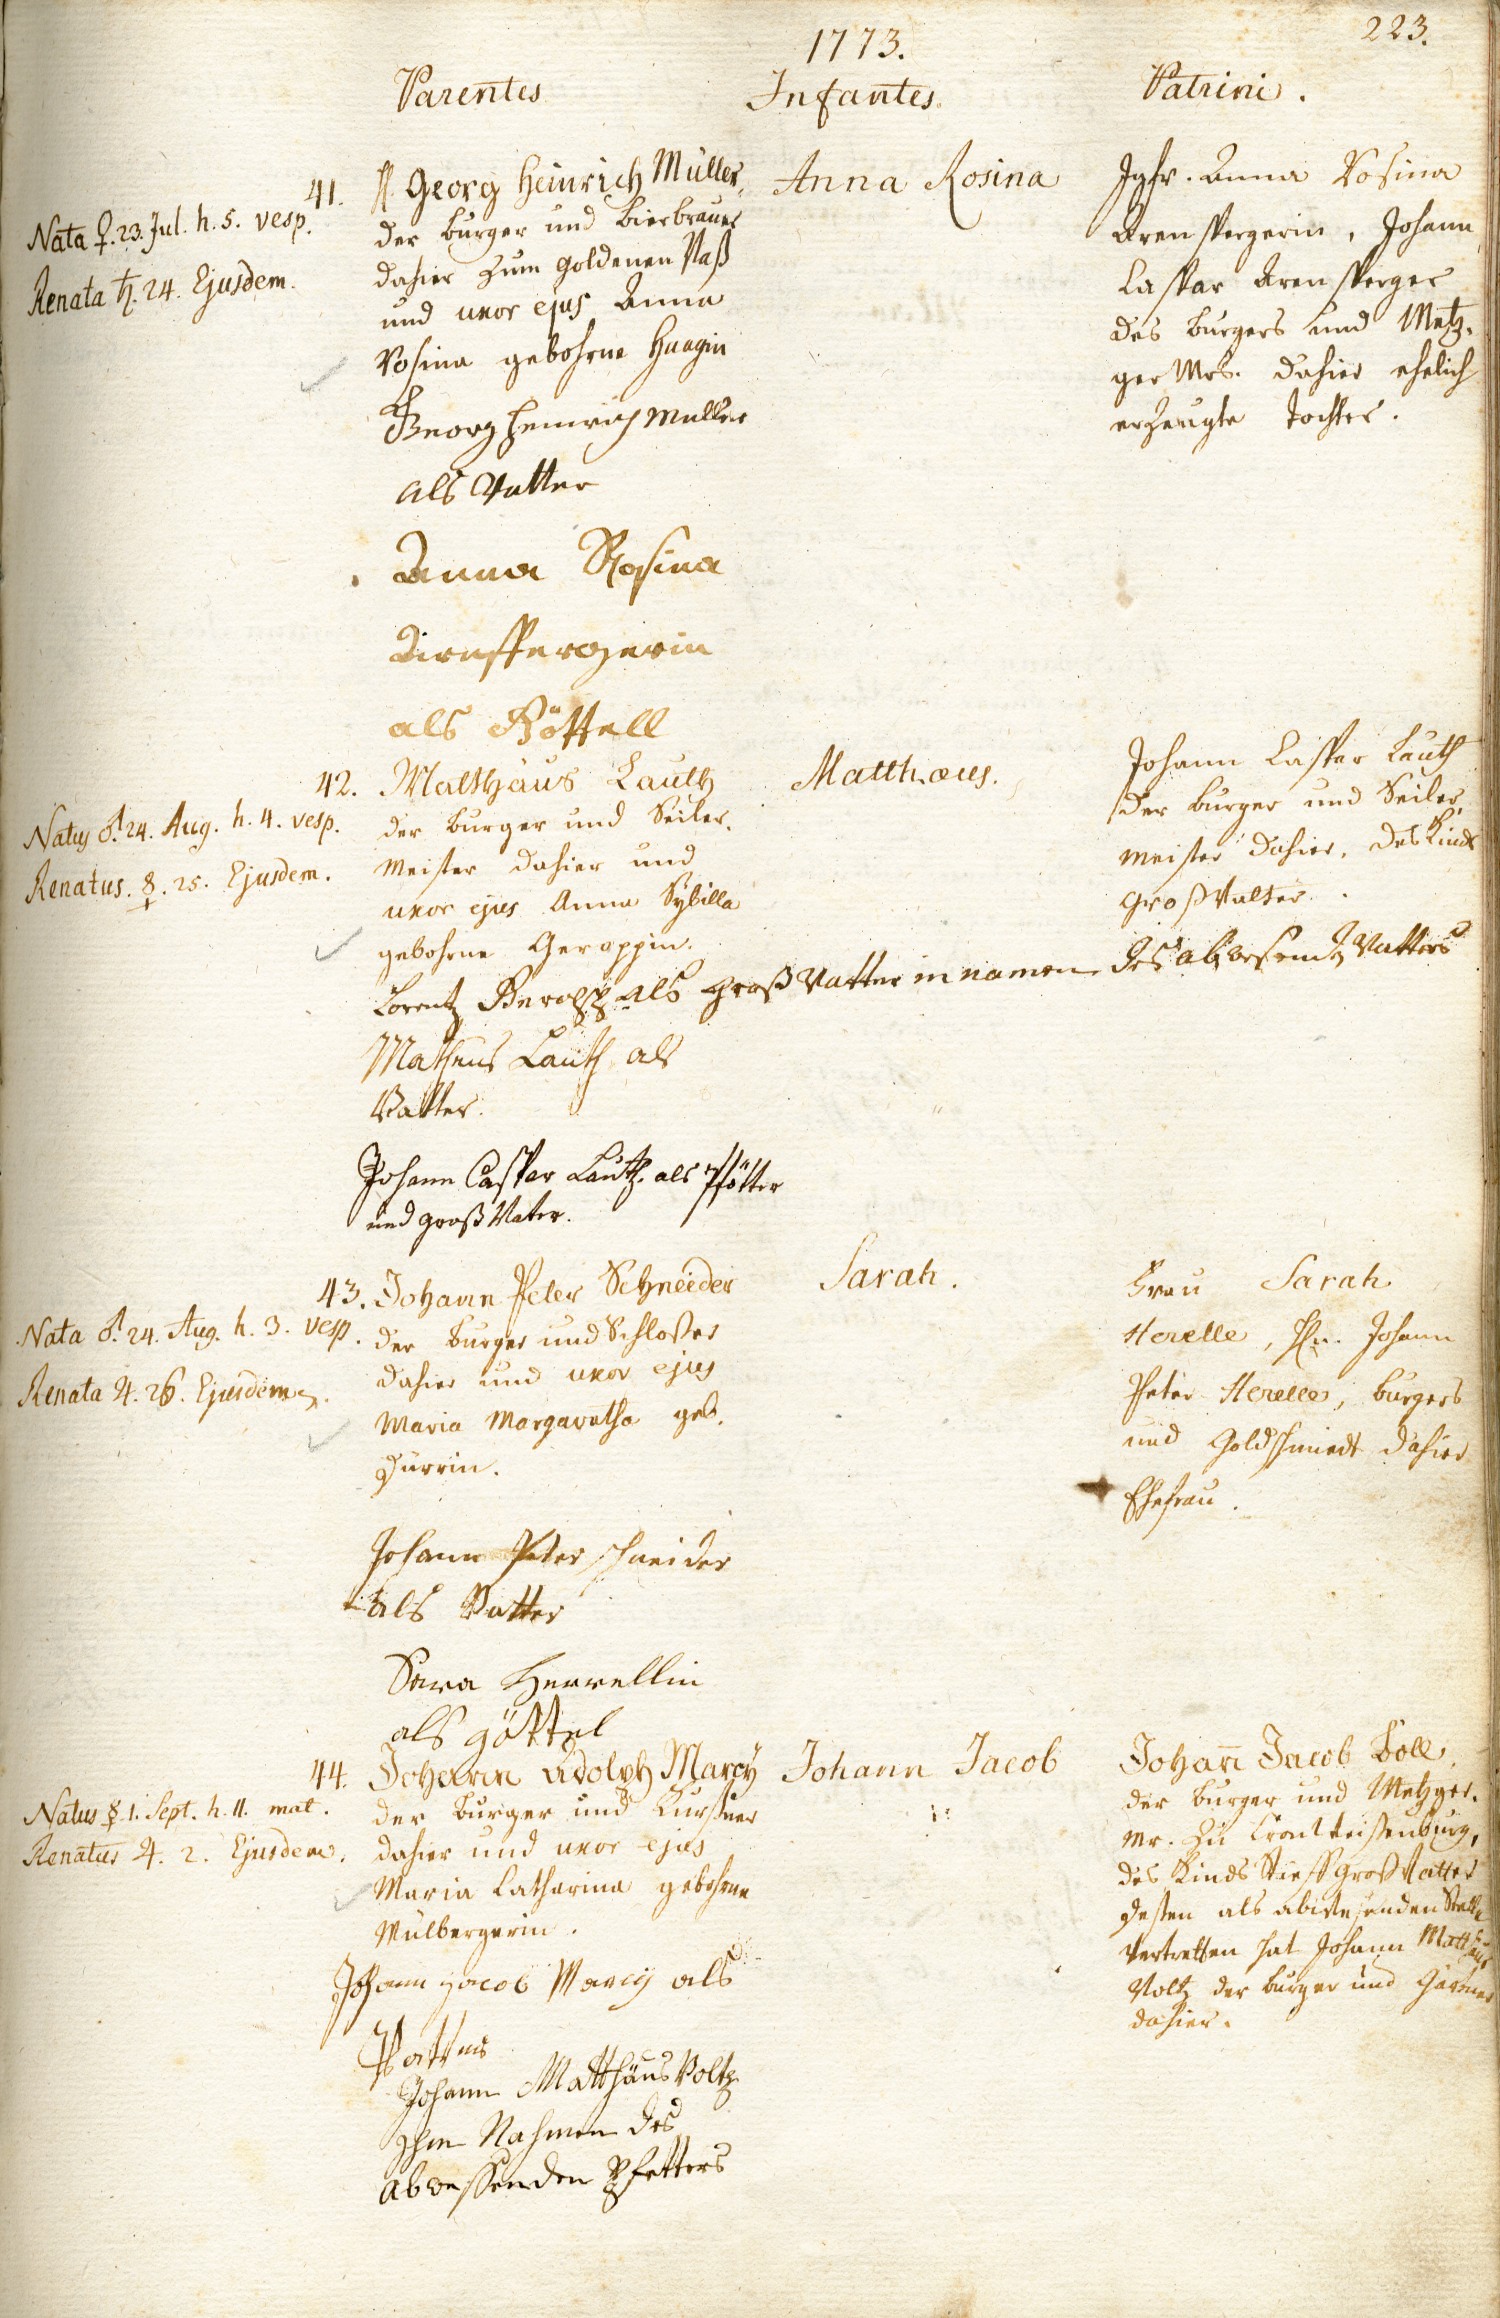 223.
1773.
Parentes Infantes. Patrini.
41.
Nata ♀. 23. Jul. h. 5. vesp.
Renata ♄. 24. Ejusdem.
H. Georg Heinrich Müller,
der burger und bierbrauer
dahier zum goldenen Faß
und uxor ejus Anna
Rosina gebohrne Haagin
Georg Heinrich Müller
als Vatter
Anna Rosina
als Göttell
Anna Rosina
Jgfr. Anna Rosina
Arenspergerin, Johann
Caspar Arensperger
des burgers und Metz-
ger Mrs. dahier ehelich
erzeugte Tochter.
42.
Natus ♂. 24. Aug. h. 4. vesp.
Renatus. ☿. 25. Ejusdem.
Matthäus Lauth
der burger und Seiler-
meister dahier und
uxor ejus Anna Sybilla
gebohrne Gerappin.
Lorentz als groß Vatter in namen des abwesend Vatters
Matheus Lauth als
Vatter.
Johann Caspar Lauth. als Pfötter
und groß Vater.
Matthæus.
Johann Caspar Lauth
der burger und Seiler-
meister dahier, des Kinds
groß Vatter.
43.
Nata ♂. 24. Aug. h. 3. vesp.
Renata ♃. 26. Ejusdem.
Johann Peter Schneider
der burger und Schloßer
dahier und uxor ejus
Maria Margaretha geb.
Dürrin.
Johann Peter schneider
als Vatter
Sara Herrellin
als göttel
Sarah.
Frau Sarah
Herelle, Hn. Johann
Peter Herelle, burgers
und Goldschmidt dahier
Ehefrau.
44.
Natus ☿ 1. Sept. h. 11. mat.
Renatus ♃. 2. Ejusdem.
Johann Adolph Marcy
der burger und Kürßner
dahier und uxor ejus
Maria Catharina gebohrne
Mülbergerin.
Johann Jacob Marcy als
Johann Matthäus Voltz
Ihm Nahmen des
abwessenden Pfetters
Johann Jacob
Johan̄ Jacob Boll,
der burger und Metzger-
mr. zu Cronweißenburg,
des Kinds Stieff groß Vatter
deßen als abweßenden Stelle
Vertretten hat Johann Matthäus
Voltz der burger und Gärtner
dahier.